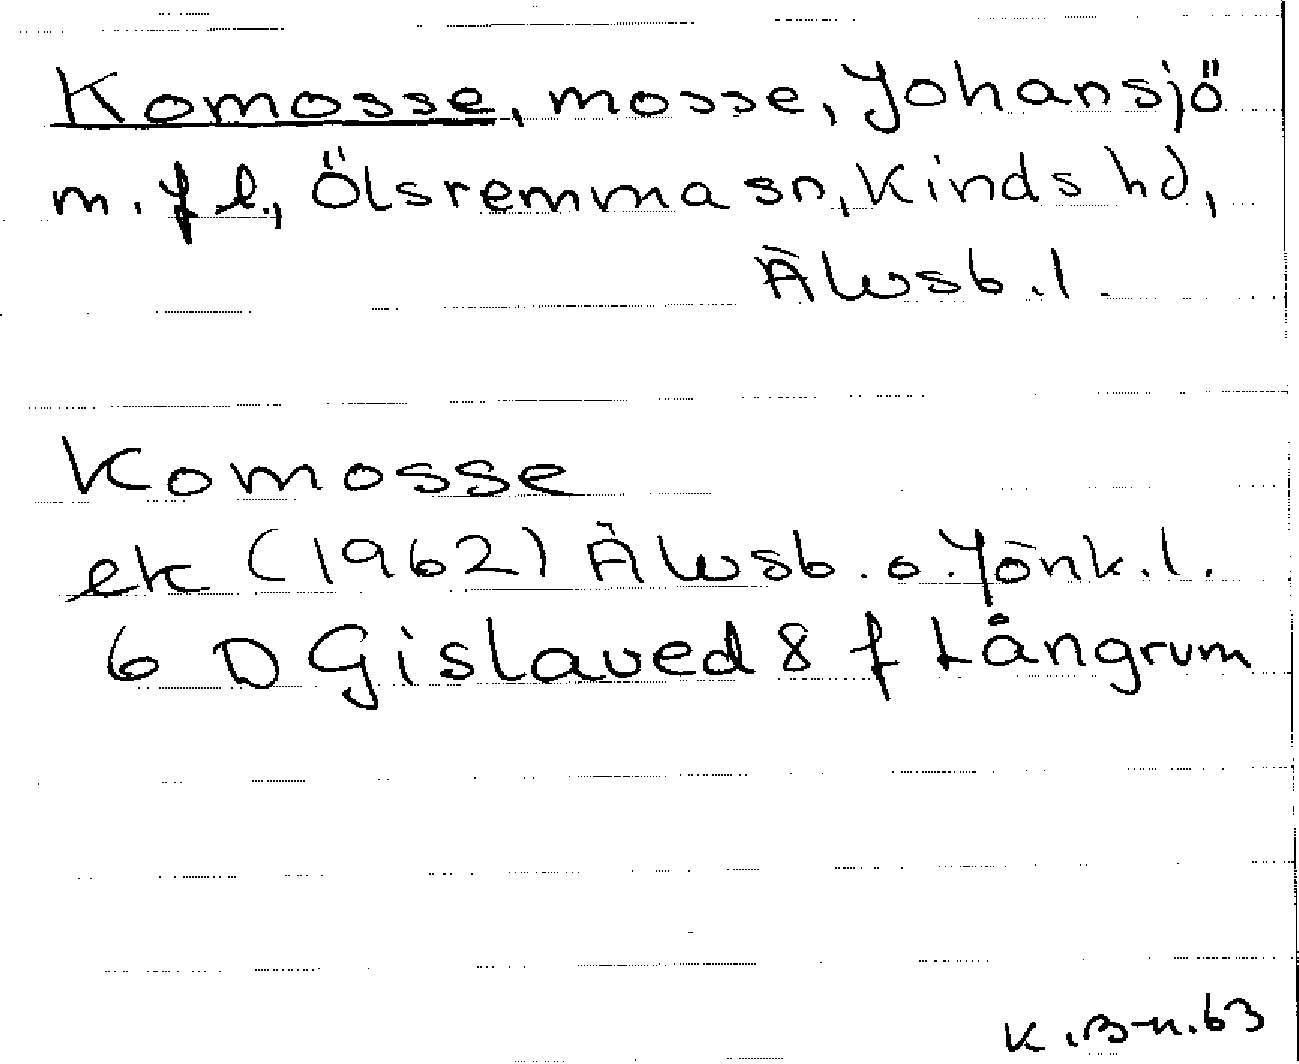 Komosse, mosse, Johansjö
m. fl., Ölsremma sn, Kinds hd,
Älvsb. l.
Komosse
ek (1962) Älvsb. o. Jönk. l.
6 D Gislaved 8 f Långrum
K. B-n. 63